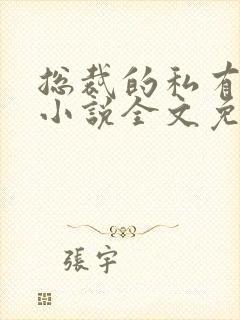 总裁的私有
小説全文免
張宇